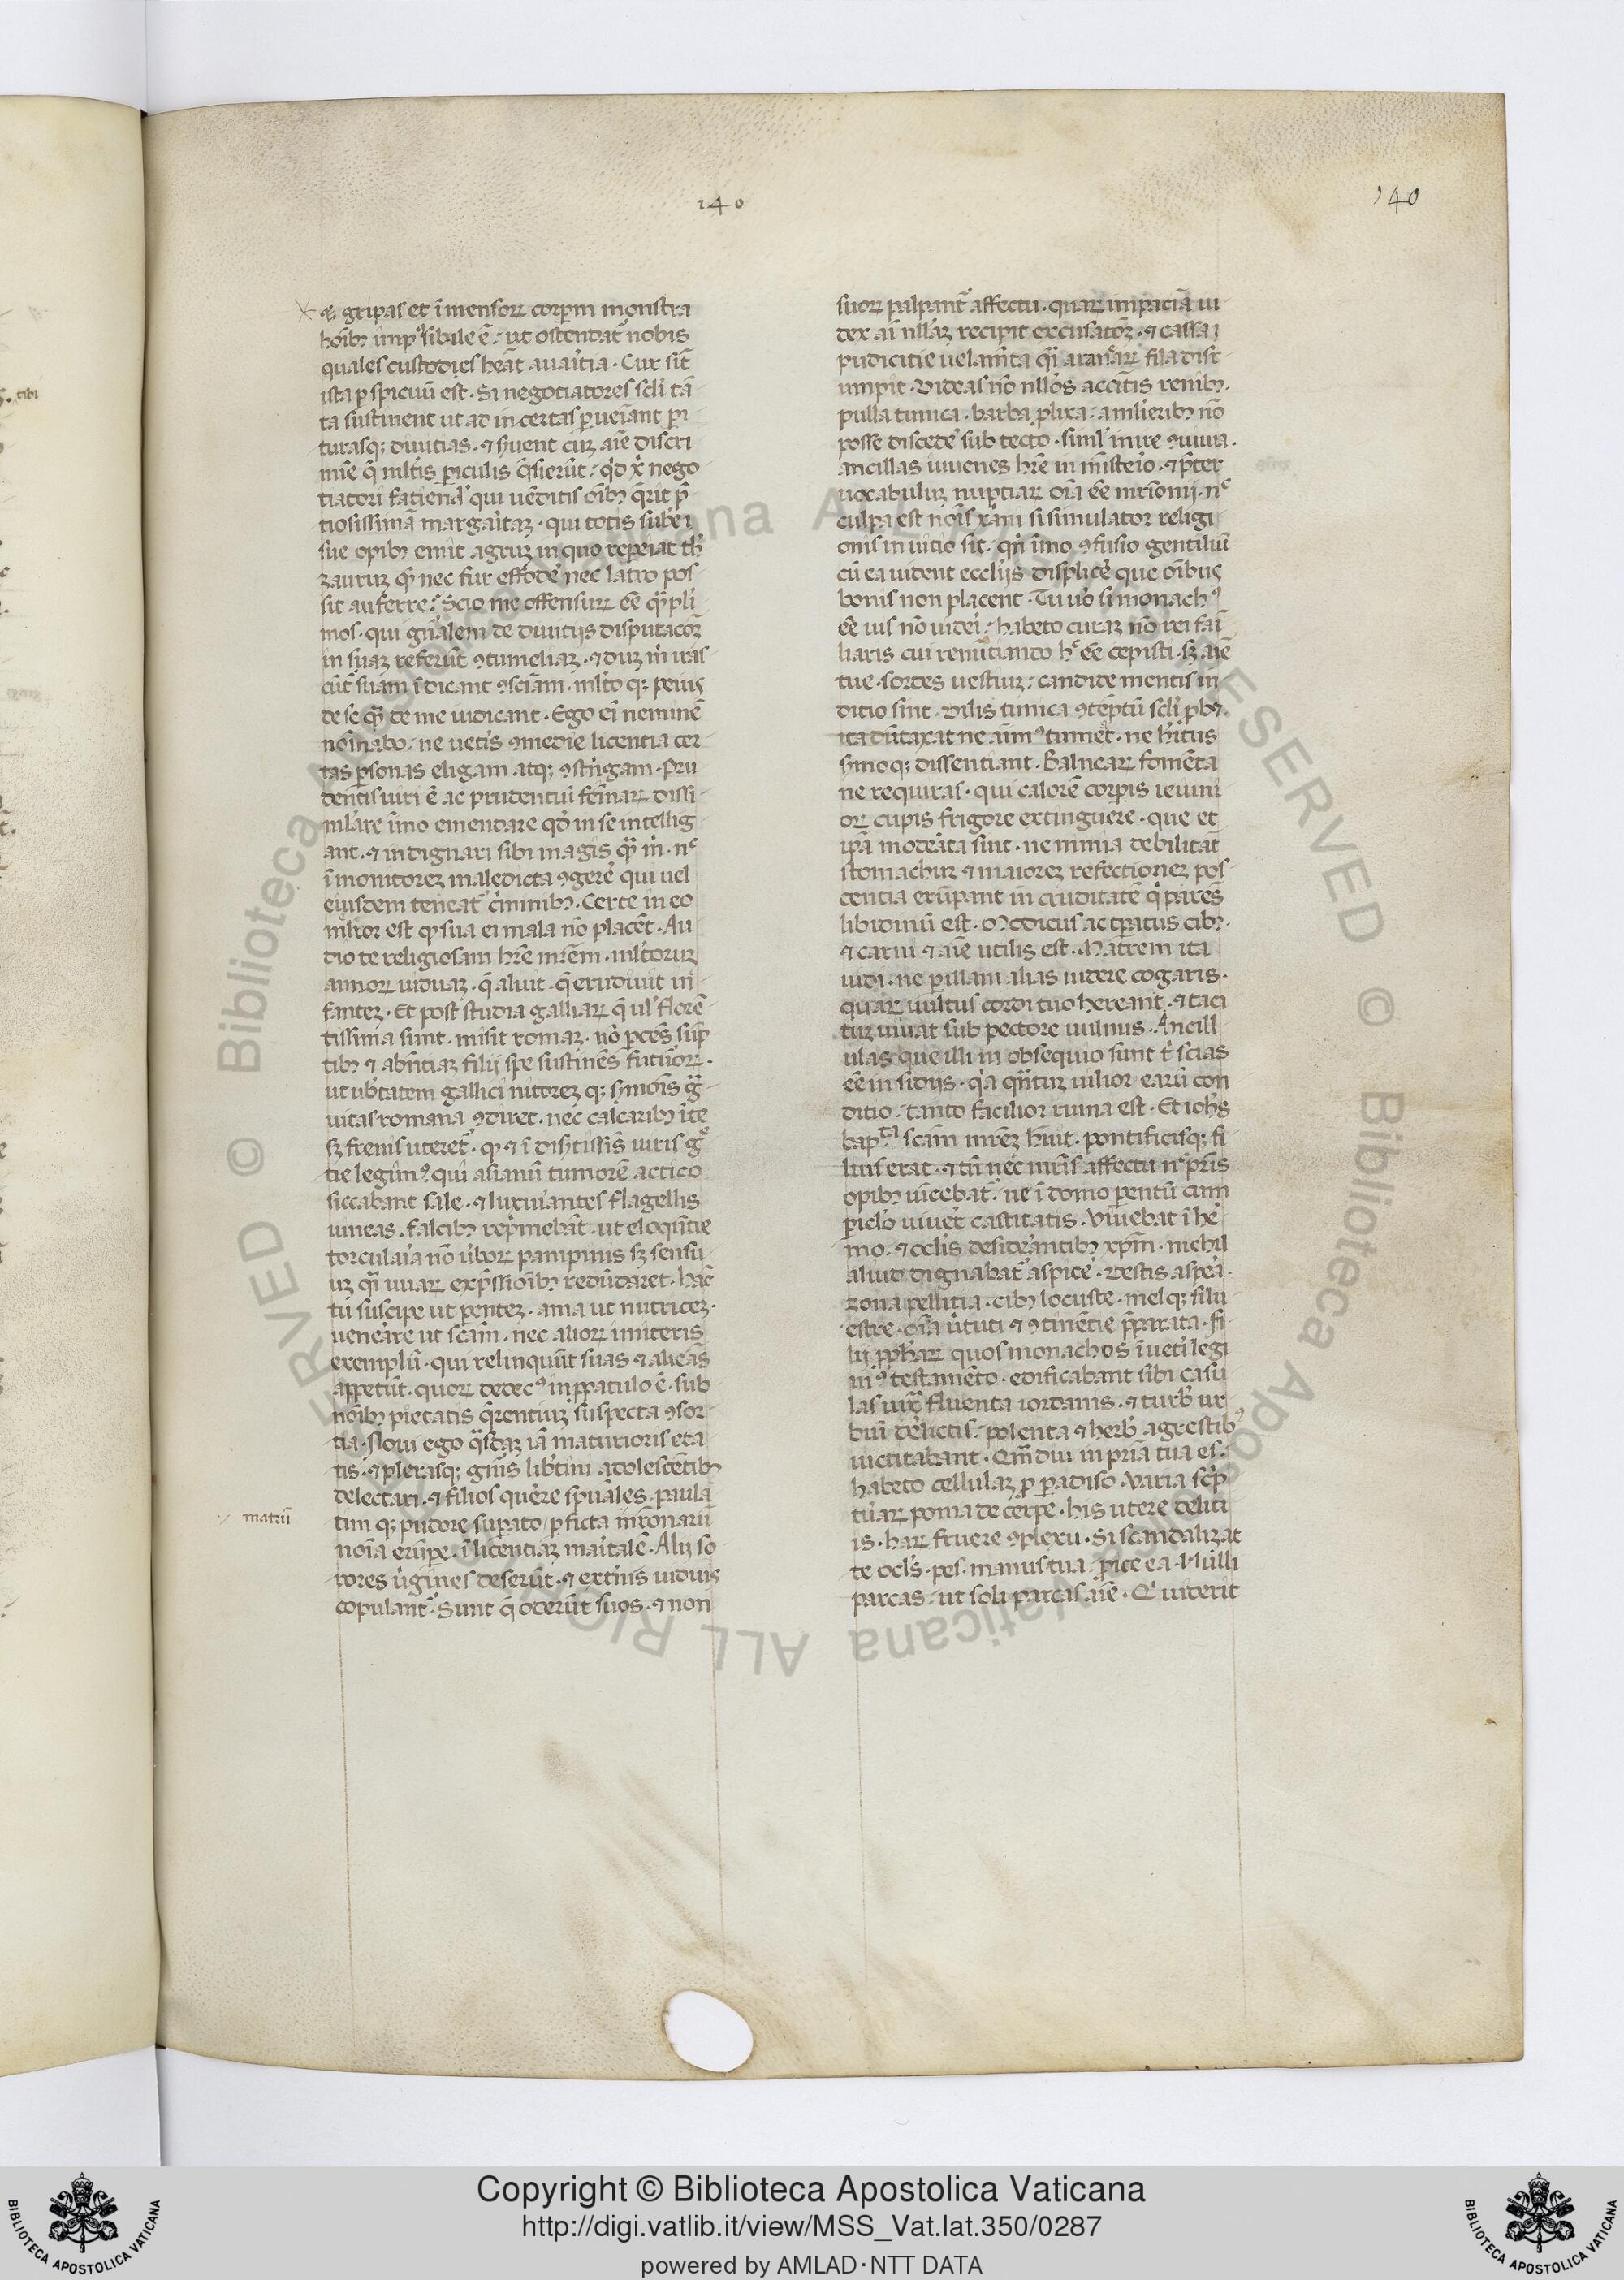 140
140
⁊ gripas et ī mensoꝝ corpm monstra
hoib; impꝰsibile ē. ut ostendat̉ nobis
quales custodies heāt auaritia. Cur sit̄
ista p spicuū est. Si negotiatores scli tā
ta sustinent ut ad in certas ꝑueiant pi
turasq; diuitias. ⁊ ẏuent cuꝫ aīe discri
mīe q̄ mltis ꝑiculis q̄sierūt. qd xͥ nego
tiatori faciend̉ qui uēditis oīb; q̄rit p̄
tiosissimā margaritaꝫ. qui totis sube i
sue opib; emit agruꝫ in quo repeiat th̉
zauruꝫ q̄ nec fur effode̓ nec latro pos
sit auferre. Scio me offensuꝝ ēē q̄ pli
mos. qui gn̄alem de diuitijs disputacōꝫ
in suaꝫ referūt ꝯtumeliaꝫ. ⁊ duꝫ m̉ iras
cūt̉ suam ī dicant ꝯsciam. mlto q; peius
de se q̄ de me iudicant. Ego ei neminē
noīnabo. ne uetis ꝯmedie licentia cer
tas ꝑsonas eligam atq; ꝯstrīgam. Pru
dentis uiri ē ac prudentuī feīnaꝝ dissi
mlare īmo emendare qd̓ in se intellig
ant. ⁊ indignari sibi magis q̄ m̉. nͨ
ī monitoreꝫ maledicta ꝯgere̓ qui uel
eiusdem teneat̉ c̉minib;. Certe in eo
mlior est q sua ei mala nō placēt. Au
dio te religiosam hr̄e mr̄em. mltoruꝫ
annoꝝ uiduaꝫ. q̄ aluit. q̄ erudiuit in
fanteꝫ. Et post studia galliaꝝ q̄ ul̓ florē
tissima sunt. misit romaꝫ. nō ꝑcēs sūp
tib; ⁊ abn̄tiaꝫ filij spe sustinēs futuoꝝ.
ut ub̓tatem gallici nitoreꝫ q; ẏmōis g̈
uitas romana ꝯdiret. nec calcarib; ī te
sꝫ frenis uteret̉. q ⁊ ī disẏtissīs uiris gͦ
tie legīmꝰ qui asianū tumorē actico
siccabant sale. ⁊ luxuriantes flagellis
uineas. falcib; rep̉mebāt. ut eloqn̄tie
torculaia nō u̓boꝝ pampinis sꝫ sensu
uꝫ q̄i uuaꝝ exp̄ssioīb; redūdaret. hāc
tu suscipe ut pēnteꝫ. ama ut nutriceꝫ.
uenerare ut scām. nec alioꝝ imiteris
exemplū. qui relinqūt suas ⁊ alieās
appetūt. quoꝝ dedecꝰ in ꝓpatulo ē. sub
noīb; pietatis q̄rentiuꝫ suspecta ꝯsor
tia. Noui ego q̄sdaꝫ iā maturioris eta
tis. ⁊ plerasq; gn̄is lib̓tini adolescētib;
delectari. ⁊ filios quere̓ spuales. paula
tim q; pudore supato / ꝑ ficta mr̄onarū
matrū
noīa erūpe. ī licentiaꝫ maritalē. Alij so
rores u̓gines deserūt. ⁊ extnis uiduis
copulant̉. Sunt q̄ oderūt suos. ⁊ non
suoꝝ palpant̉ affectu. quaꝝ inpaciā iu
dex ai nllaꝫ recipit excusatōꝫ. ⁊ cassa i
pudicitie uelamīta q̄i aranaꝝ fila disr
umpit. Videas nō nllos accītis renib;.
pulla tunica. barba ꝓlixa. a mlierib; nō
posse discede̓ sub tecto. siml̓ inire ꝯuiuia.
ancillas iuuenes hr̄e in mīsteio. ⁊ p̄ter
uocabuluꝫ nuptiaꝝ oīa ēē mr̄ionij. nͨ
culpa est noīs xāni si simulator religi
onis in uitio sit. qn īmo ꝯfusio gentiliuī
cū ea uident ecclijs displice̓ que oībus
bonis non placent. Tu uo̓ si monachꝰ
ēē uis nō uideri. habeto curaꝫ nō rei fāi
liaris cui renūtiando hͨ ēē cepisti. sꝫ aīe
tue. sordes uestiuꝫ. candide mentis in
dicio sint. Vilis tunica ꝯtēptū scli ꝓbꝫ.
ita dūtaxat ne aīmꝰ tumēt. ne hītus
ẏmoq; dissentiant. Balneaꝝ fomēta
ne requiras. qui calorē corpis ieiuni
oꝝ cupis frigore extinguere. que et
ip̄a modeata sint. ne nimia debilitāt
stomachuꝫ ⁊ maioreꝫ refectioneꝫ pos
centia erūpant in cruditatē q̓ parēs
libidinū est. Modicus ac tꝑatus cib;.
⁊ carni ⁊ aīe utilis est. Matrem ita
uidi. ne ꝑ illam alias uidere cogaris.
quaꝝ uultus cordi tuo hereant. ⁊ taci
tuꝫ uiuat sub pectore uulnus. Ancill
ulas que illi in obsequio sunt t̓ scias
ēē in sidijs. q̓a qn̄tuꝫ uilior earū con
ditio. tanto facilior ruina est. Et iohs
bapͭᵃ scām mr̄eꝫ huit. pontificisq; fi
lius erat. ⁊ tn̄ nec mr̄is affectu nͨ pris
opib; uīcebat̉. ne ī domo pentū cum
piclo uiuet̓ castitatis. Viuebat ī he
mo. ⁊ oclis desideantib; xp̄m. nichil
aliud dignabat̉ aspice̓. Vestis aspea.
zona pellitia. cib; locuste. melq; silu
estre. oīa ututi ⁊ ꝯtinētie p̄parata. fi
lij ꝓph̄aꝝ quos monachos ī ueti legi
mꝰ testamēto. edificabant sibi casu
las iux̄ fluenta iordanis. ⁊ turb̓ ur
biū de̓lictis. polenta ⁊ herb̓ agrestibꝰ
uictitabant. Qm̄diu in pr̄ia tua es.
habeto cellulaꝫ ꝓ padiso. Varia sc̓p
tuaꝝ poma de cerpe. his utere delici
is. haꝝ fruere ꝯplexu. Si scandalizat
te ocls. pes. manus tua. ꝓice ea. Nulli
parcas. ut soli parcas aīe. Qͥ uiderit
Copyright © Biblioteca Apostolica Vaticana
http://digi.vatlib.it/view/MSS_Vat.lat.350/0287
powered by AMLAD·NTT DATA